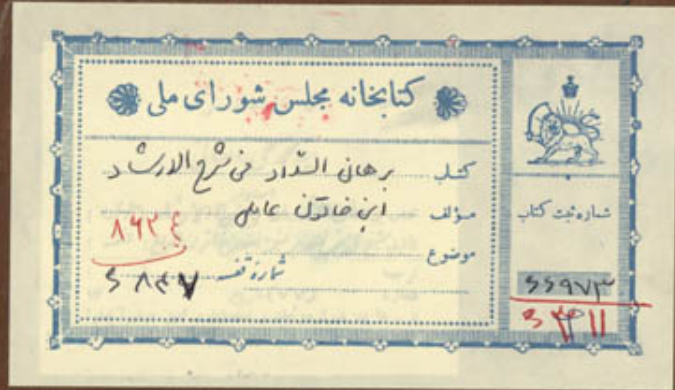 کتابخانه مجلس شورای ملی
کتاب برهان السّداد فی شرح الارشاد
مؤلف ابن خاتون عاملی
موضوع
۸۶۲۴
شماره قفسه
شماره ثبت کتاب